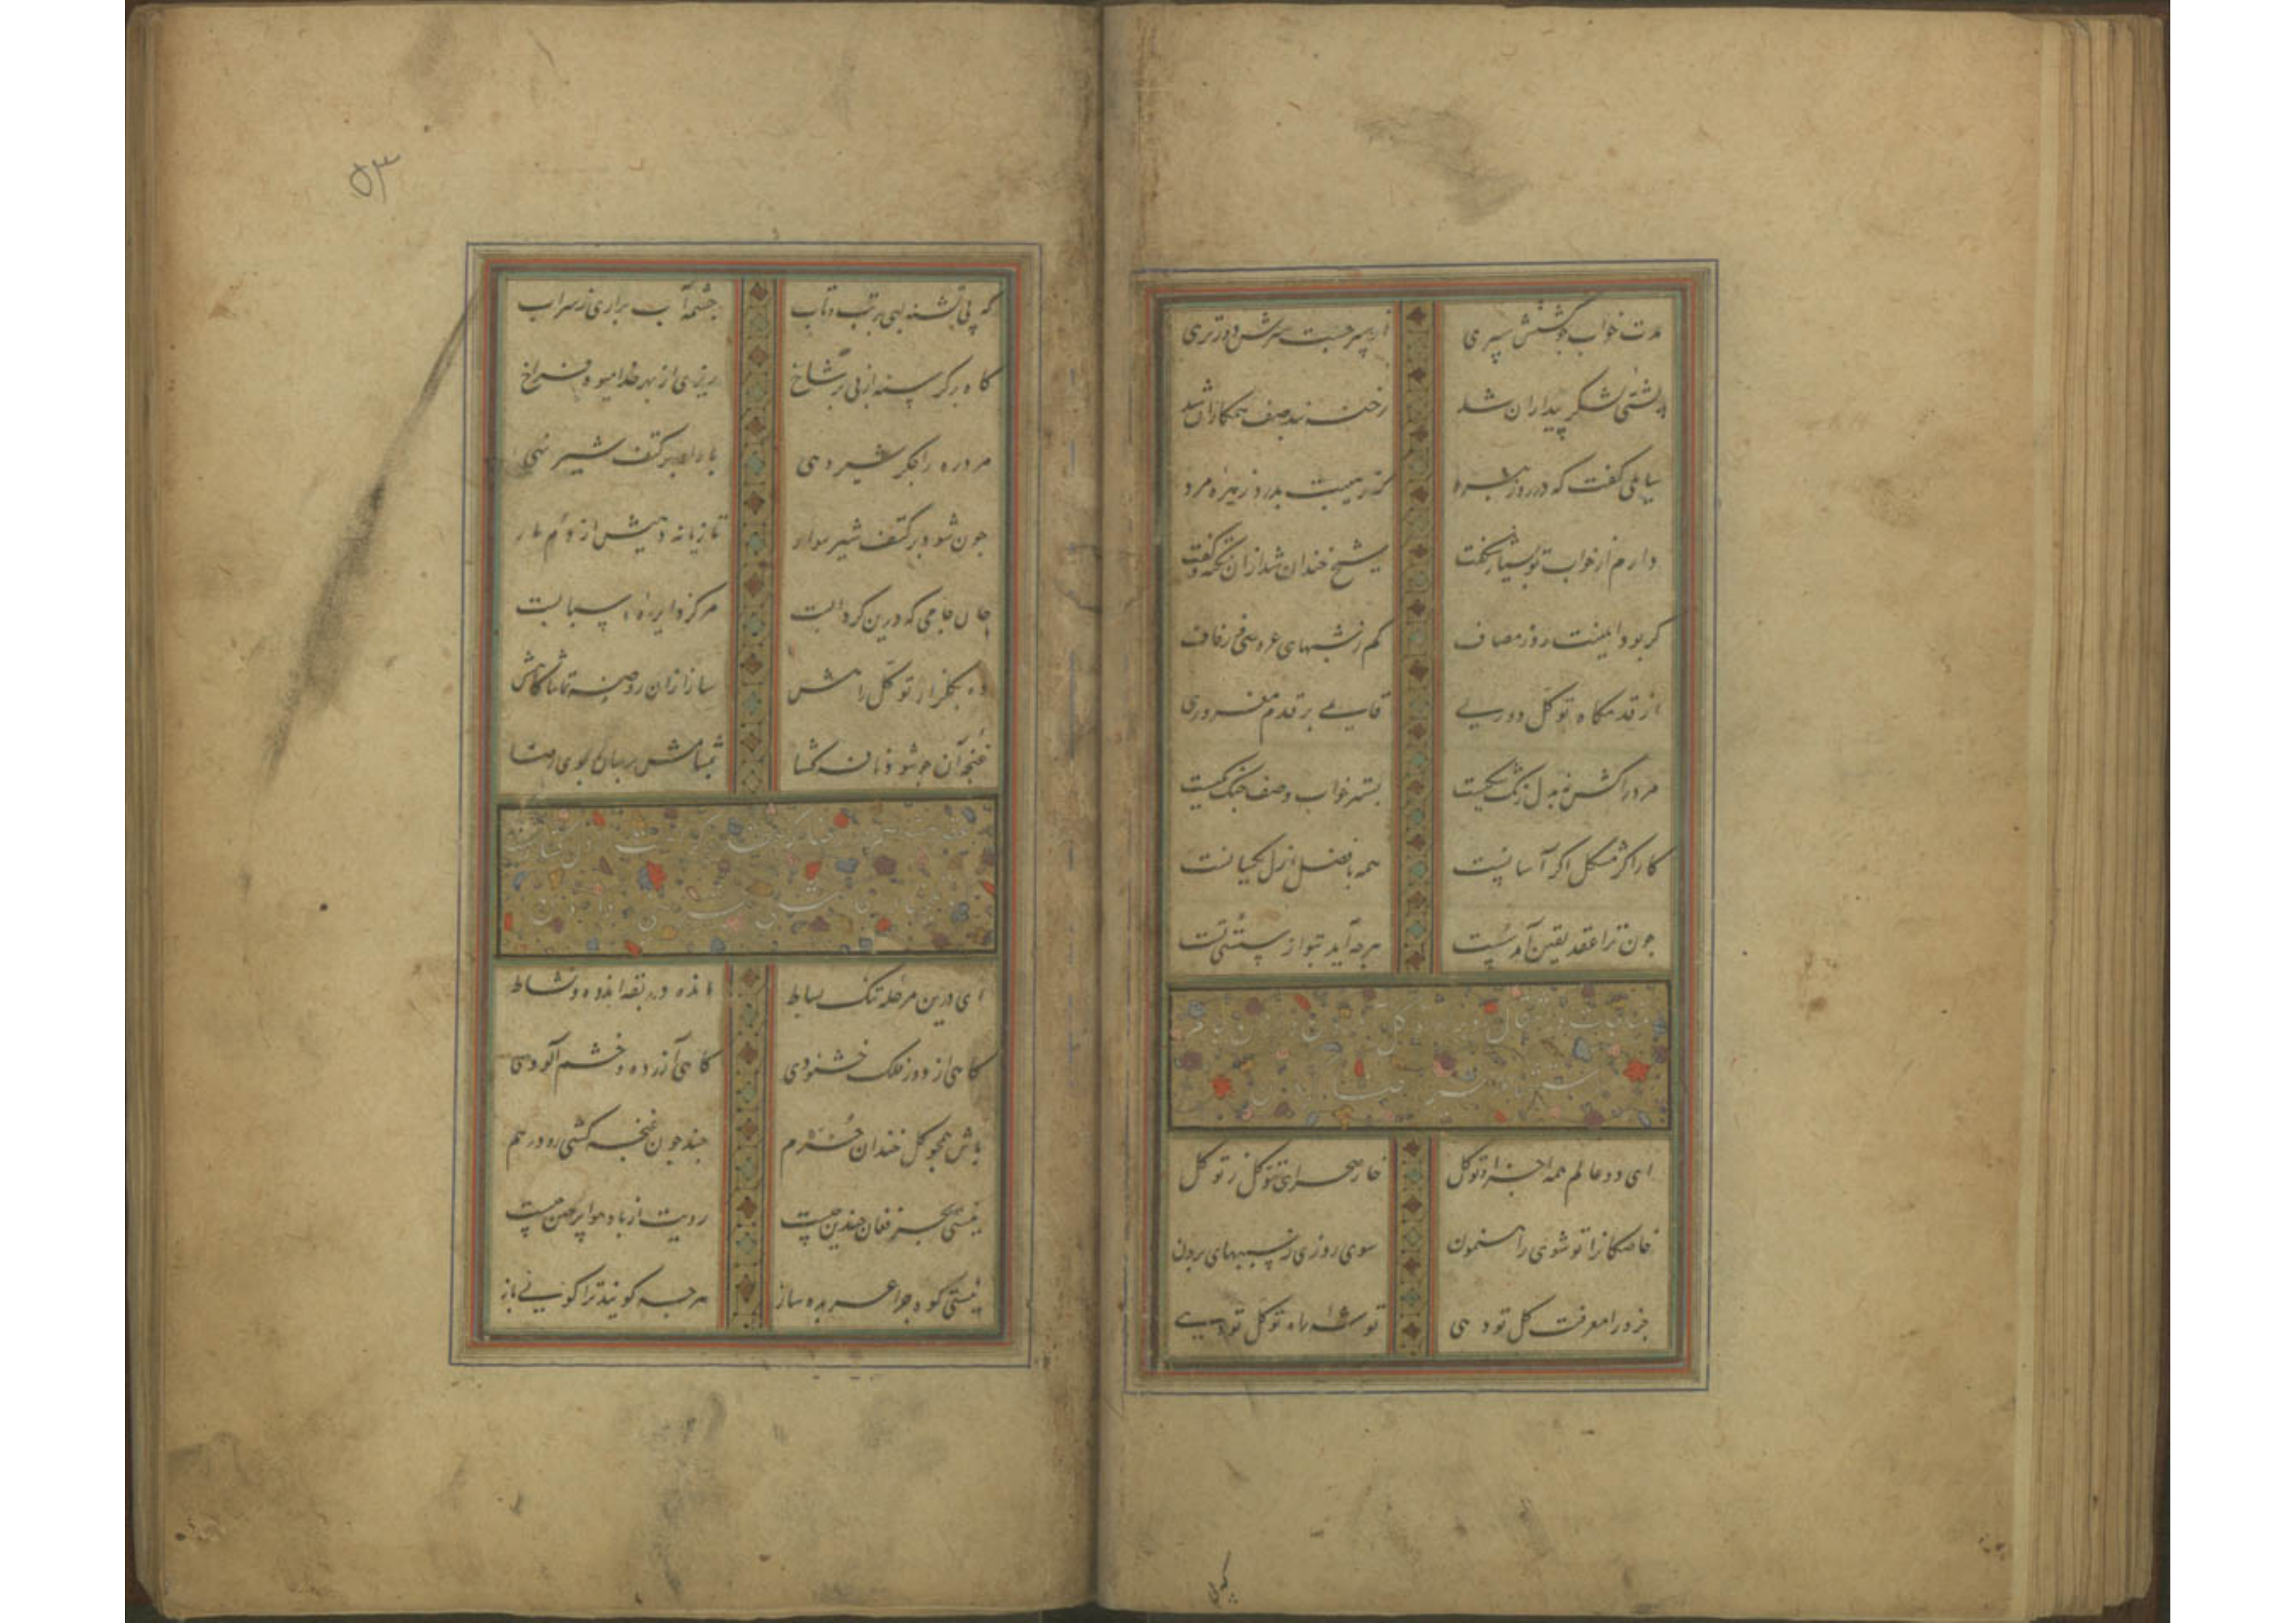 مدت خواب خوشش سپری از سپر جست سرش دورتری
پشتی لشکر بیداران شد رخنه بند صف همکاران شد
سایلی گفت که در روز نبرد کز هیبت بدرد زهره مرد
دارم از خواب تو بسیار شگفت شیخ خندان شد ازان نکته و گفت
گر بود ایمنیت روز مصاف کم ز شبهای عروسی و زفاف
از قدمگاه توکل دوری قایمی بر قدم مغروری
مرد را کش ز دل زنگ یکیست بستر خواب و صف جنگ یکیست
کار اگر مشکل اگر آسانست همه با فضل ازل یکسانست
چون ترا عقد یقین آمد سست هرچه آید بتو از سستی تست
مناجات در انتقال توکل
ای دو عالم همه اجزا تو کل خار صحرای توکل ز تو گل
خاصگانرا تو شوی راهنمون سوی روزی ز سببهای برون
جزو را معرفت کل تو دهی توشه راه توکل تو دهی
۵۳
که پی تشنه لبی در تب و تاب چشمه آب براری ز سراب
گاه بر گرسنه از بی بر شاخ ریزی از بهر غذا میوه فراخ
مرد ره را جگر شیر دهی بار او بر کتف شیر نهی
چون شود بر کتف شیر سوار تازیانه دهیش از دم مار
جان جامی که درین گرداب مرکز دایره اسبابست
ده بگلزار توکل راهش ساز ازان روضه تماشاگاهش
غنچه آن چو شود نافه گشا بمشامش برسان بوی رضا
ای درین مرحله تنگ بساط مانده در ربقه اندوه و نشاط
گاهی از دور فلک خشنودی گاهی آزرده و خشم آلودی
باش همچو گل خندان خرم چند چون غنچه کشی رو در هم
نیستی بحر فغان چندین چیست رویت از باد هوا پرچین چیست
نیستی کوه چرا عربده ساز هرچه گویند ترا گویی باز